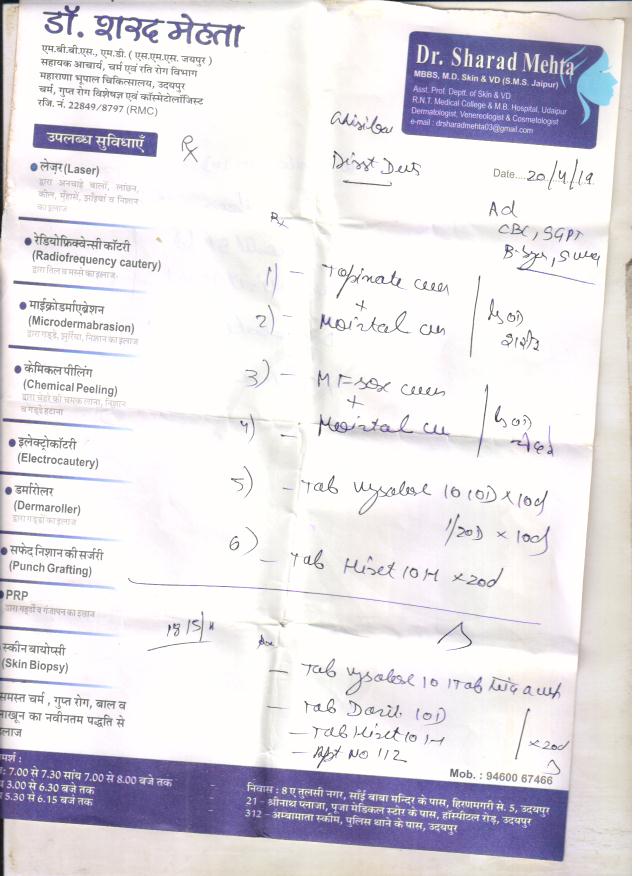 डॉ. शरद मेहता
एम.बी.बी.एस., एम.डी. ( एस.एम.एस. जयपुर )
सहायक आचार्य, चर्म एवं रति रोग विभाग
महाराणा भूपाल चिकित्सालय, उदयपुर
चर्म, गुप्त रोग विशेषज्ञ एवं कॉस्मेटोलॉजिस्ट
रजि. नं. 22849/8797 (RMC)
Dr. Sharad Mehta
MBBS, M.D. Skin & VD (S.M.S. Jaipur)
Asst. Prof. Deptt. of Skin & VD
R.N.T. Medical College & M.B. Hospital, Udaipur
Dermatologist, Venereologist & Cosmetologist
e-mail : drsharadmehta03@gmail.com
उपलब्ध सुविधाएँ
Rx
Date....20/4/19
लेज़र (Laser)
द्वारा अनचाहे बालों, लांछन,
कील, मुँहासे, झाँइयां व निशान
का इलाज
रेडियोफ्रिक्वेन्सी कॉटरी
(Radiofrequency cautery)
द्वारा तिल व मस्से का इलाज
माईक्रोडर्माएब्रेशन
(Microdermabrasion)
द्वारा गड्ढे, झुर्रियां, निशान का इलाज
केमिकल पीलिंग
(Chemical Peeling)
द्वारा चेहरे की चमक लाना, निशान
व गड्ढे हटाना
इलेक्ट्रोकॉटरी
(Electrocautery)
डर्मारोलर
(Dermaroller)
द्वारा गड्ढों का इलाज
सफेद निशान की सर्जरी
(Punch Grafting)
PRP
द्वारा गड्ढों व गंजापन का इलाज
स्कीन बायोप्सी
(Skin Biopsy)
समस्त चर्म , गुप्त रोग, बाल व
नाखून का नवीनतम पद्धति से
इलाज
Rx
Ad
CBC, SGPT
1) - Topinate
+
2) - Moistal
3) - MF-sox
+
4) - Moistal
5) - Tab Wysolone 10 10D x 10d
1/20D x 10d
6) - Tab Hiset 10 H x 20d
- Tab Wysolone 10 1Tab
- Tab 10D
- Tab Hiset 10 H
x 20d
Mob. : 94600 67466
: 7.00 से 7.30 सांय 7.00 से 8.00 बजे तक
3.00 से 6.30 बजे तक
5.30 से 6.15 बजे तक
निवास : 8 ए तुलसी नगर, सांई बाबा मन्दिर के पास, हिरणमगरी से. 5, उदयपुर
21 - श्रीनाथ प्लाजा, पूजा मेडिकल स्टोर के पास, हॉस्पीटल रोड़, उदयपुर
312 - अम्बामाता स्कीम, पुलिस थाने के पास, उदयपुर